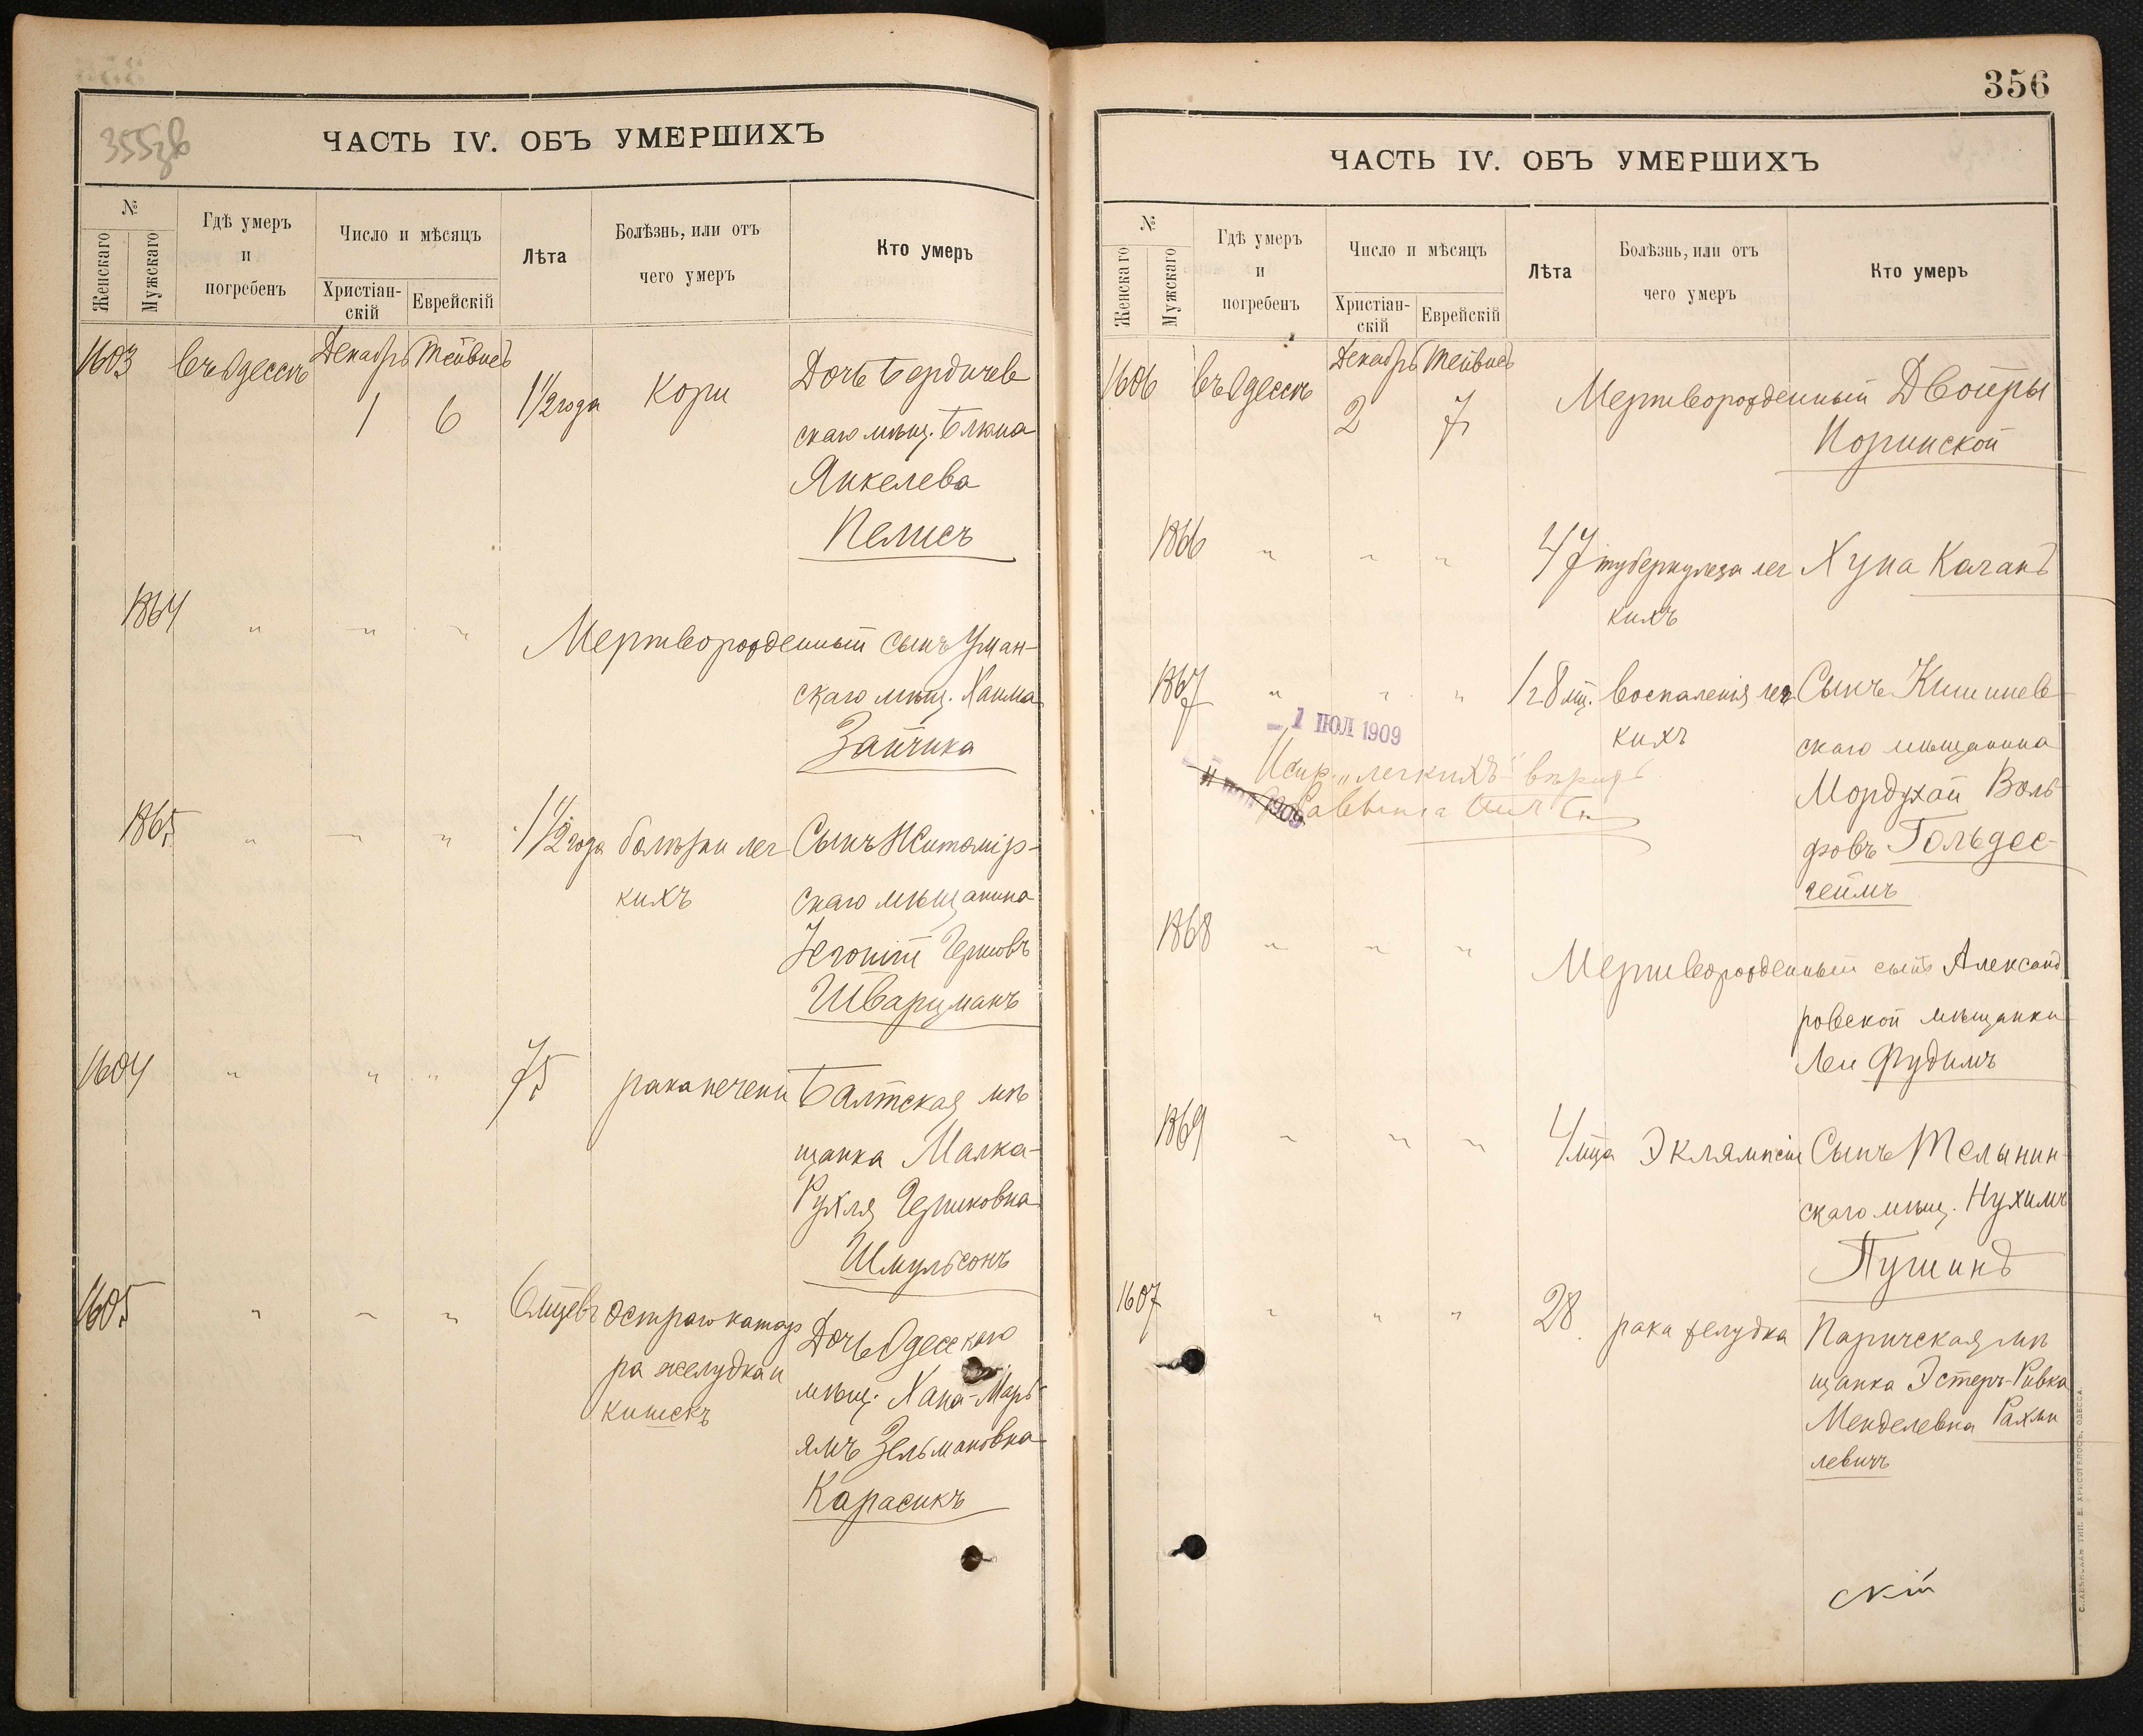 355зв
ЧАСТЬ IV. ОБЪ УМЕРШИХЪ
№
Женскаго
Мужскаго
Гдѣ умеръ
и
погребенъ
Число и мѣсяцъ
Христіан-
скій
Еврейскій
Лѣта
Болѣзнь, или отъ
чего умеръ
Кто умеръ
1603 въ Одессѣ Декабрь Тейвисъ
1 6 1 1/2 года Кори Дочь Бердичев
скаго мѣщ.
Янкелева
Пелисъ
1864 " " " Мертворожденный сынъ Уман-
скаго мѣщ. Хаима
Зайчика
1865 " " " 1 1/2 года болѣзни лег Сынъ Житомір-
кихъ скаго мѣщанина
Гершовъ
Шварцманъ
1604 " " " 75 рака печени Балтская мѣ
щанка Малка-
Рухля Гершковна
Шмульсонъ
1605 " " " 6 мцевъ остраго катар Дочь Одесскаго
ра желудка и мѣщ. Хана-Марь
кишекъ ямъ Зельмановна
Карасикъ
356
ЧАСТЬ IV. ОБЪ УМЕРШИХЪ
№
Женскаго
Мужскаго
Гдѣ умеръ
и
погребенъ
Число и мѣсяцъ
Христіан-
скій
Еврейскій
Лѣта
Болѣзнь, или отъ
чего умеръ
Кто умеръ
1606 въ Одессѣ Декабрь Тейвисъ
2 7 Мертворожденный Двойры
Поринской
1866 " " " 47 туберкулеза лег Хуна Каганъ
кихъ
1867 " " " 1 г 8 мц. воспаленія лег Сынъ Кишинев
кихъ скаго мѣщанина
1 ІЮЛ 1909
Испр. "легкихъ" вѣрно
1909
Мордухай Воль
фовъ Гольдес-
геймъ
1868 " " " Мертворожденный сынъ Александ
ровской мѣщанки
Леи Фудимъ
1869 " " " 4 мца Эклямпсіи Сынъ
скаго мѣщ. Нухимъ
Пушинъ
1607 " " " 28 рака желудка Паричская мѣ
щанка Эстеръ-Ривка
Менделевна Рахми
левичъ
скій
С.            ТИП. Е. ХРИСОГЕЛОСЪ, ОДЕССА.